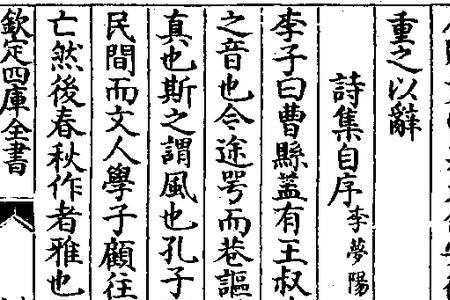 重之以辭
詩集自序 李夢陽
李子曰曹縣蓋有王叔
之音也今途咢而巷謳
真也斯之謂風也孔子
民間而文人學子顧往
亡然後春秋作者雅也
欽定四庫全書